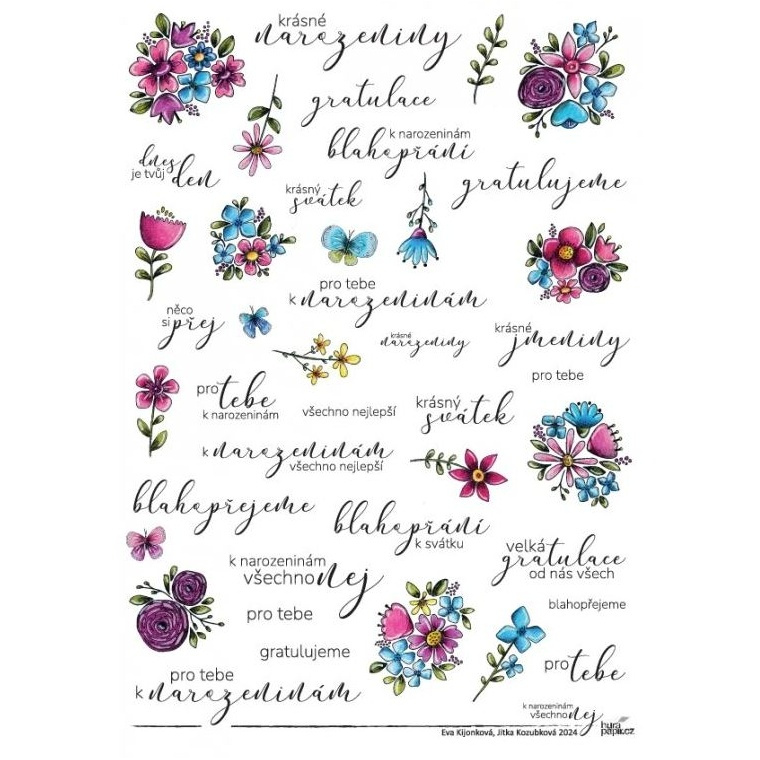 krásné
narozeniny
gratulace
k narozeninám
blahopřání
dnes
je tvůj den
gratulujeme
krásný
svátek
pro tebe
k narozeninám
něco
si přej
krásné
narozeniny
krásné
jmeniny
pro tebe
pro tebe
k narozeninám
všechno nejlepší
krásný
svátek
k narozeninám
všechno nejlepší
blahopřejeme
blahopřání
k svátku
velká
gratulace
od nás všech
k narozeninám
všechno nej
blahopřejeme
pro tebe
gratulujeme
pro tebe
pro tebe
k narozeninám
k narozeninám
všechno nej
Eva Kijonková, Jitka Kozubková 2024
hurá
papír.cz